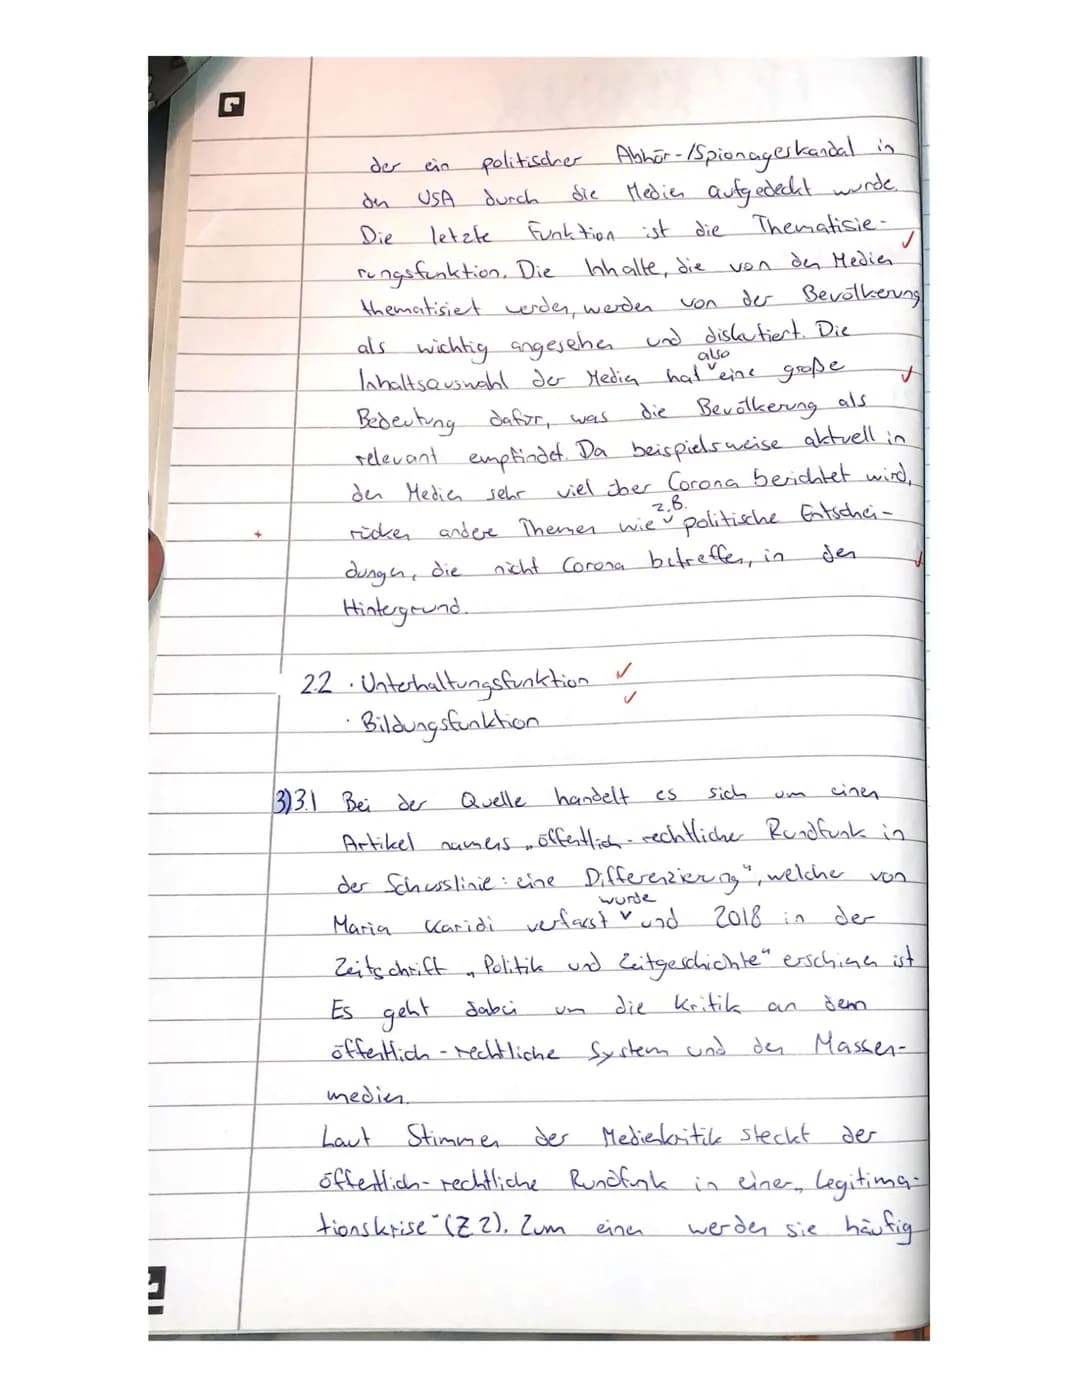 der ein politischer Abhör-/Spionageskandal in
den USA durch die Medien aufgedeckt wurde.
Die letzte Funktion ist die Thematisie-
rungsfunktion. Die Inhalte, die von den Medien
thematisiert werden, werden von der Bevölkerung
als wichtig angesehen und diskutiert. Die
Inhaltsauswahl der Medien hat also eine große
Bedeutung dafür, was die Bevölkerung als
relevant empfindet. Da beispielsweise aktuell in
den Medien sehr viel über Corona berichtet wird,
rücken andere Themen wie z.B. politische Entschei-
dungen, die nicht Corona betreffen, in den
Hintergrund.
2.2 · Unterhaltungsfunktion
· Bildungsfunktion
3)3.1 Bei der Quelle handelt es sich um einen
Artikel namens „öffentlich-rechtlicher Rundfunk in
der Schusslinie: eine Differenzierung", welcher von
Maria Karidi verfasst wurde und 2018 in der
Zeitschrift „Politik und Zeitgeschichte" erschienen ist
Es geht dabei um die Kritik an dem
öffentlich-rechtliche System und den Massen-
medien.
Laut Stimmen der Medienkritik steckt der
öffentlich-rechtliche Rundfunk in einer „Legitima-
tionskrise" (Z.2). Zum einen werden sie häufig